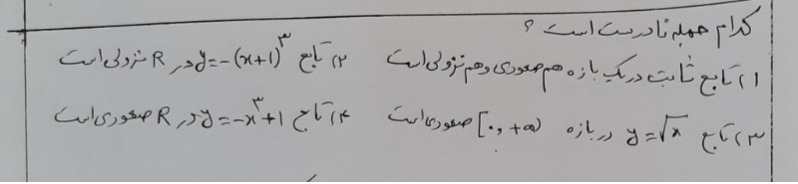 کدام جمله نادرست است ؟
۱) تابع ثابت در یک بازه هم صعودی و هم نزولی است ۲) تابع y=-(x+1)³ در R نزولی است
۳) تابع y=√x در بازه [۰,+∞) صعودی است ۴) تابع y=-x³+1 در R صعودی است